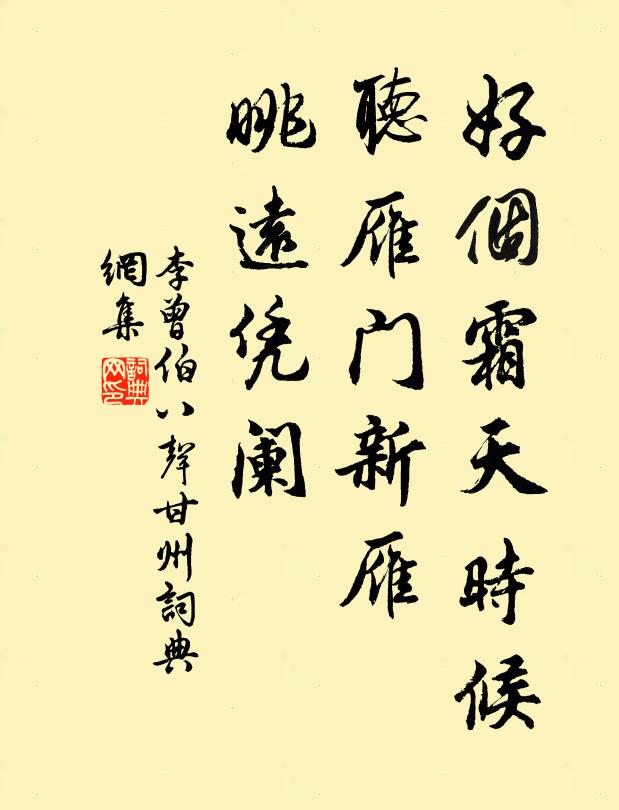 好個霜天時候
聽雁门新雁
眺遠凭阑
李曾伯八聲甘州詞典
網集
詞典
网印